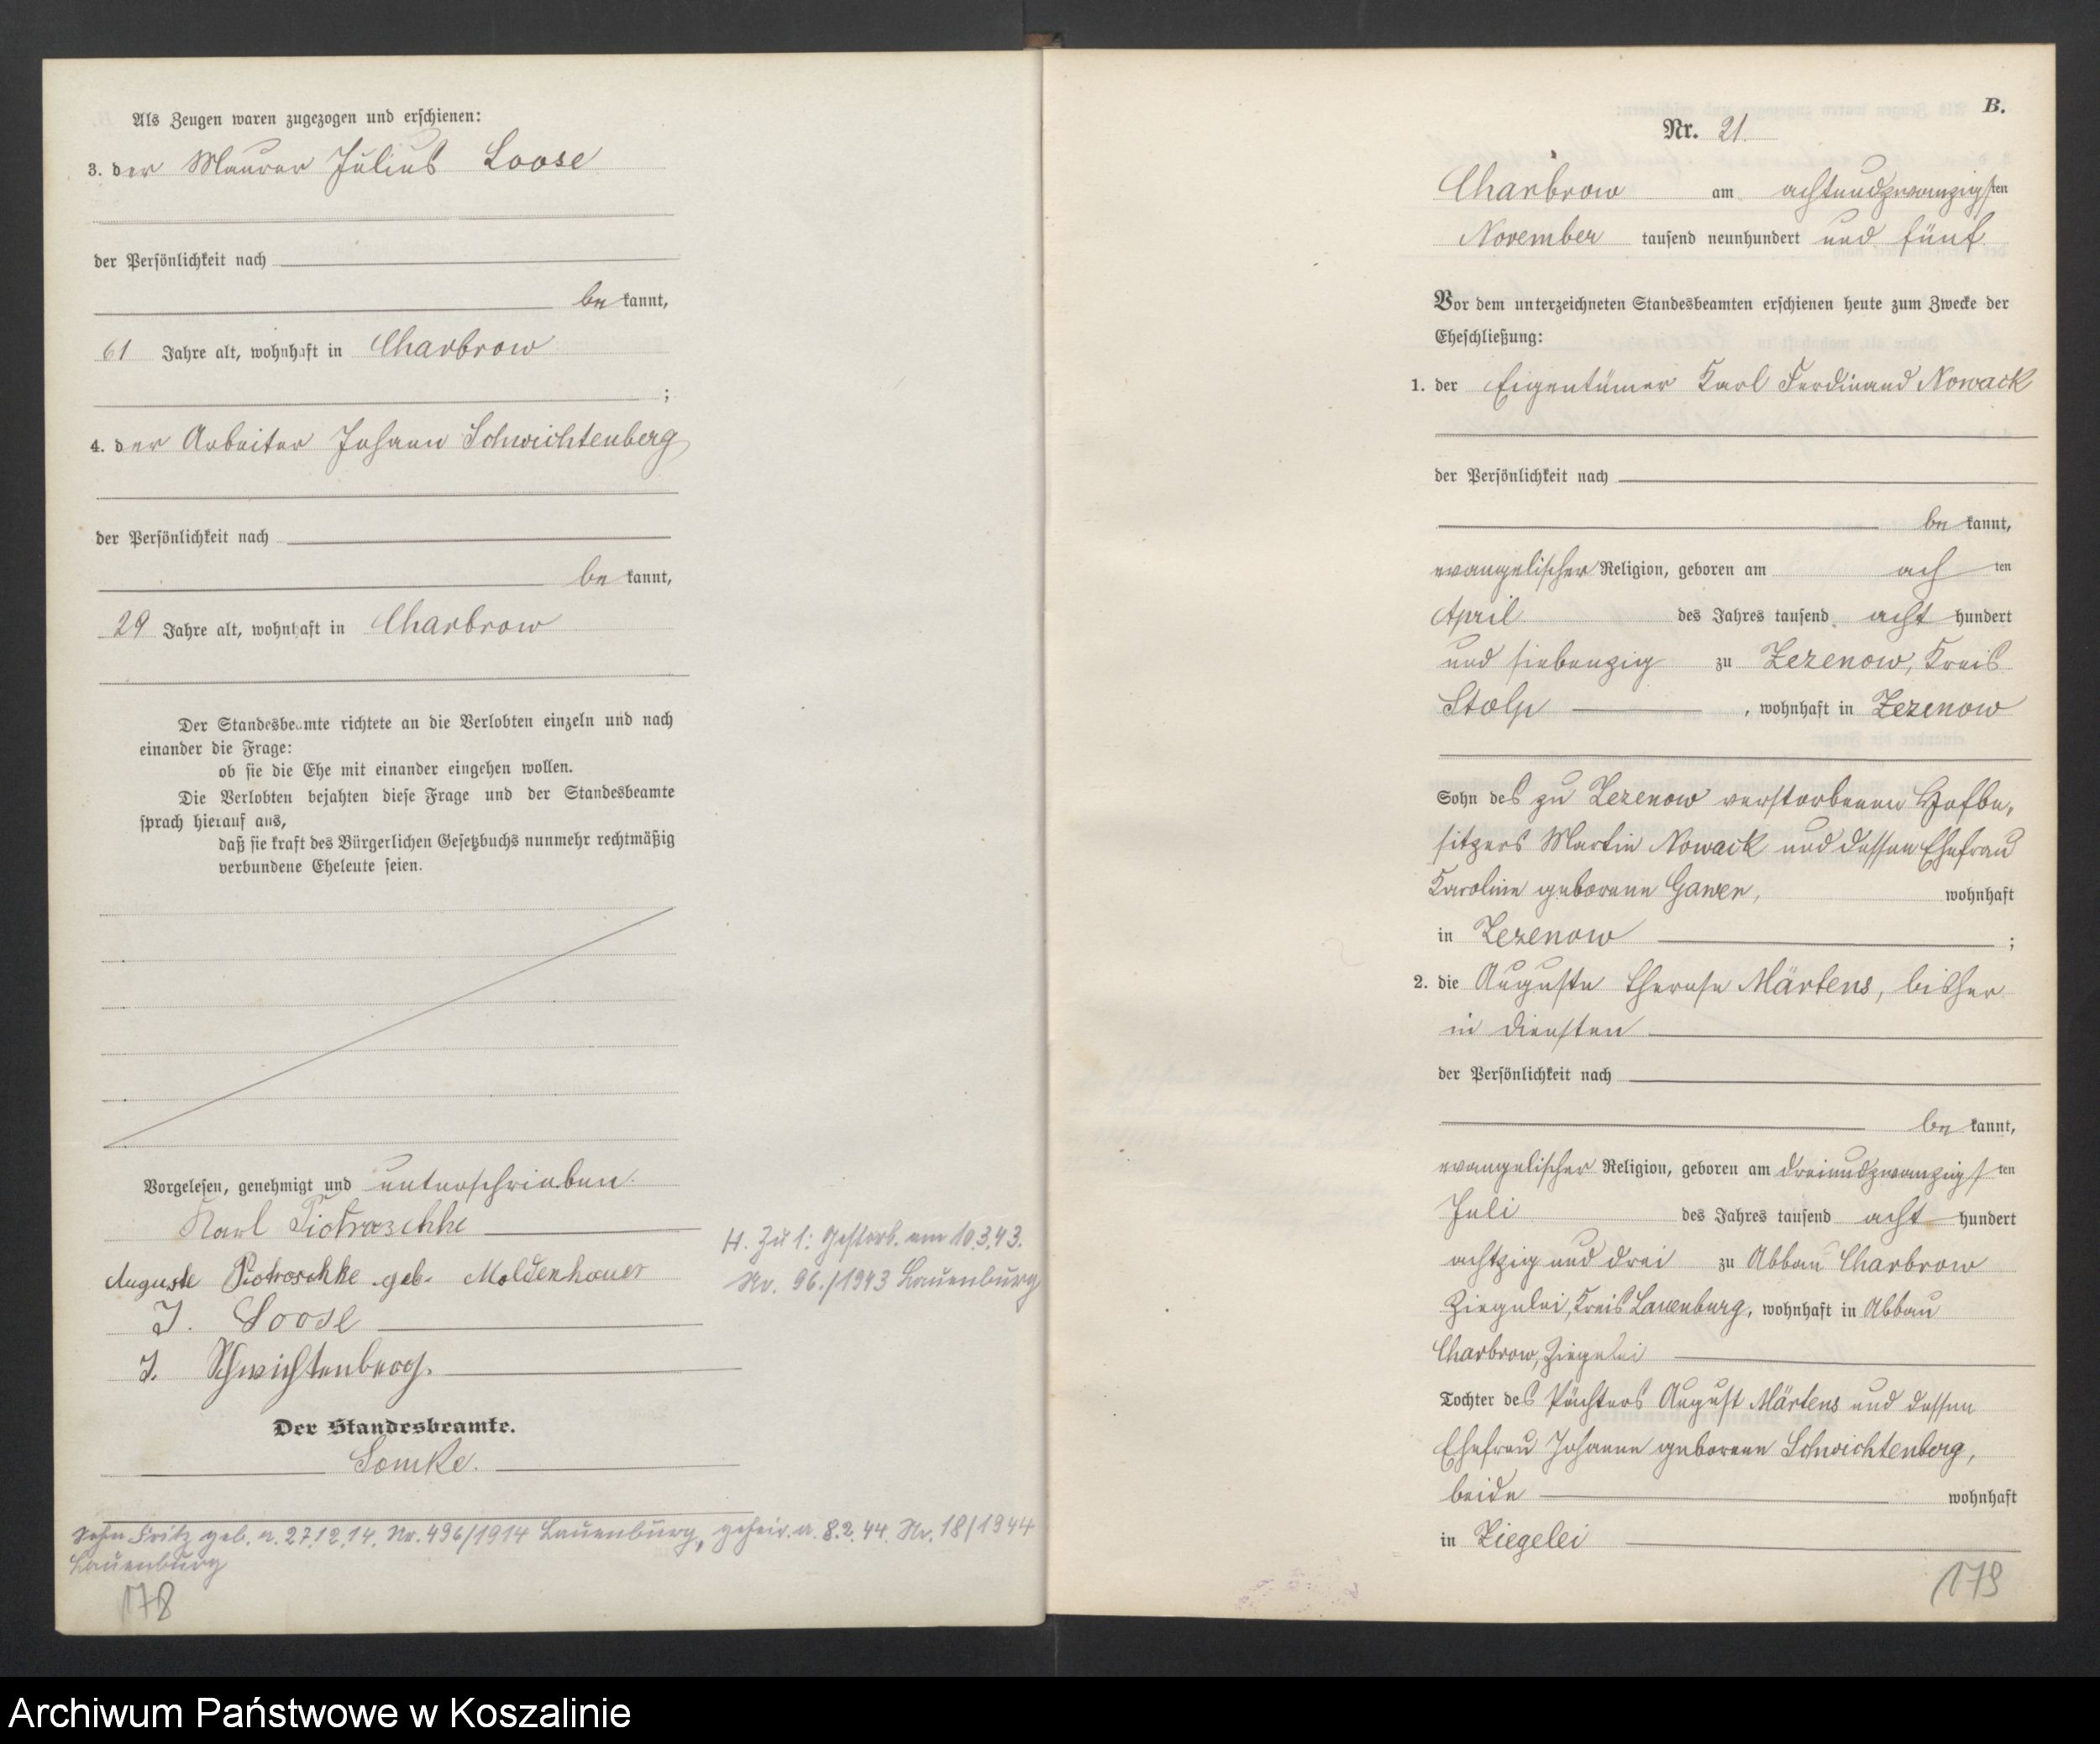 Als Zeugen waren zugezogen und erschienen:
3. der Maurer Julius Loose
der Persönlichkeit nach
be kannt,
61 Jahre alt, wohnhaft in Charbrow
;
4. der Arbeiter Johann Schwichtenberg
der Persönlichkeit nach
be kannt,
29 Jahre alt, wohnhaft in Charbrow
Der Standesbeamte richtete an die Verlobten einzeln und nach
einander die Frage:
ob sie die Ehe mit einander eingehen wollen.
Die Verlobten bejahten diese Frage und der Standesbeamte
sprach hierauf aus,
daß sie kraft des Bürgerlichen Gesetzbuchs nunmehr rechtmäßig
verbundene Eheleute seien.
Vorgelesen, genehmigt und unterschrieben.
Karl Piotraschke
Auguste Piotroschke geb. Moldenhauer
J. Loose
J. Schwichtenberg.
Der Standesbeamte.
Lomke.
H. Zu 1: Gestorb. am 10.3.43.
Nr. 96./1943 Lauenburg
Sohn Fritz geb. a. 27.12.14. Nr. 496/1914 Lauenburg, geheir. a. 8.2.44. Nr. 18/1944
Lauenburg
178
B.
Nr. 21.
Charbrow am achtundzwanzigsten
November tausend neunhundert und fünf
Vor dem unterzeichneten Standesbeamten erschienen heute zum Zwecke der
Eheschließung:
1. der Eigentümer Karl Ferdinand Nowack
der Persönlichkeit nach
be kannt,
evangelischer Religion, geboren am ach ten
April des Jahres tausend acht hundert
und siebenzig zu Zezenow, Kreis
Stolp , wohnhaft in Zezenow
Sohn des zu Zezenow verstorbenen Hofbe-
sitzers Martin Nowack und dessen Ehefrau
Karoline geborene Gawen, wohnhaft
in Zezenow ;
2. die Auguste Therese Märtens, bisher
in Diensten
der Persönlichkeit nach
be kannt,
evangelischer Religion, geboren am dreiundzwanzigsten
Juli des Jahres tausend acht hundert
achtzig und drei zu Abbau Charbrow
Ziegelei, Kreis Lauenburg, wohnhaft in Abbau
Charbrow, Ziegelei
Tochter des Pächters August Märtens und dessen
Ehefrau Johanne geborene Schwichtenberg,
beide wohnhaft
in Ziegelei
179
Archiwum Państwowe w Koszalinie